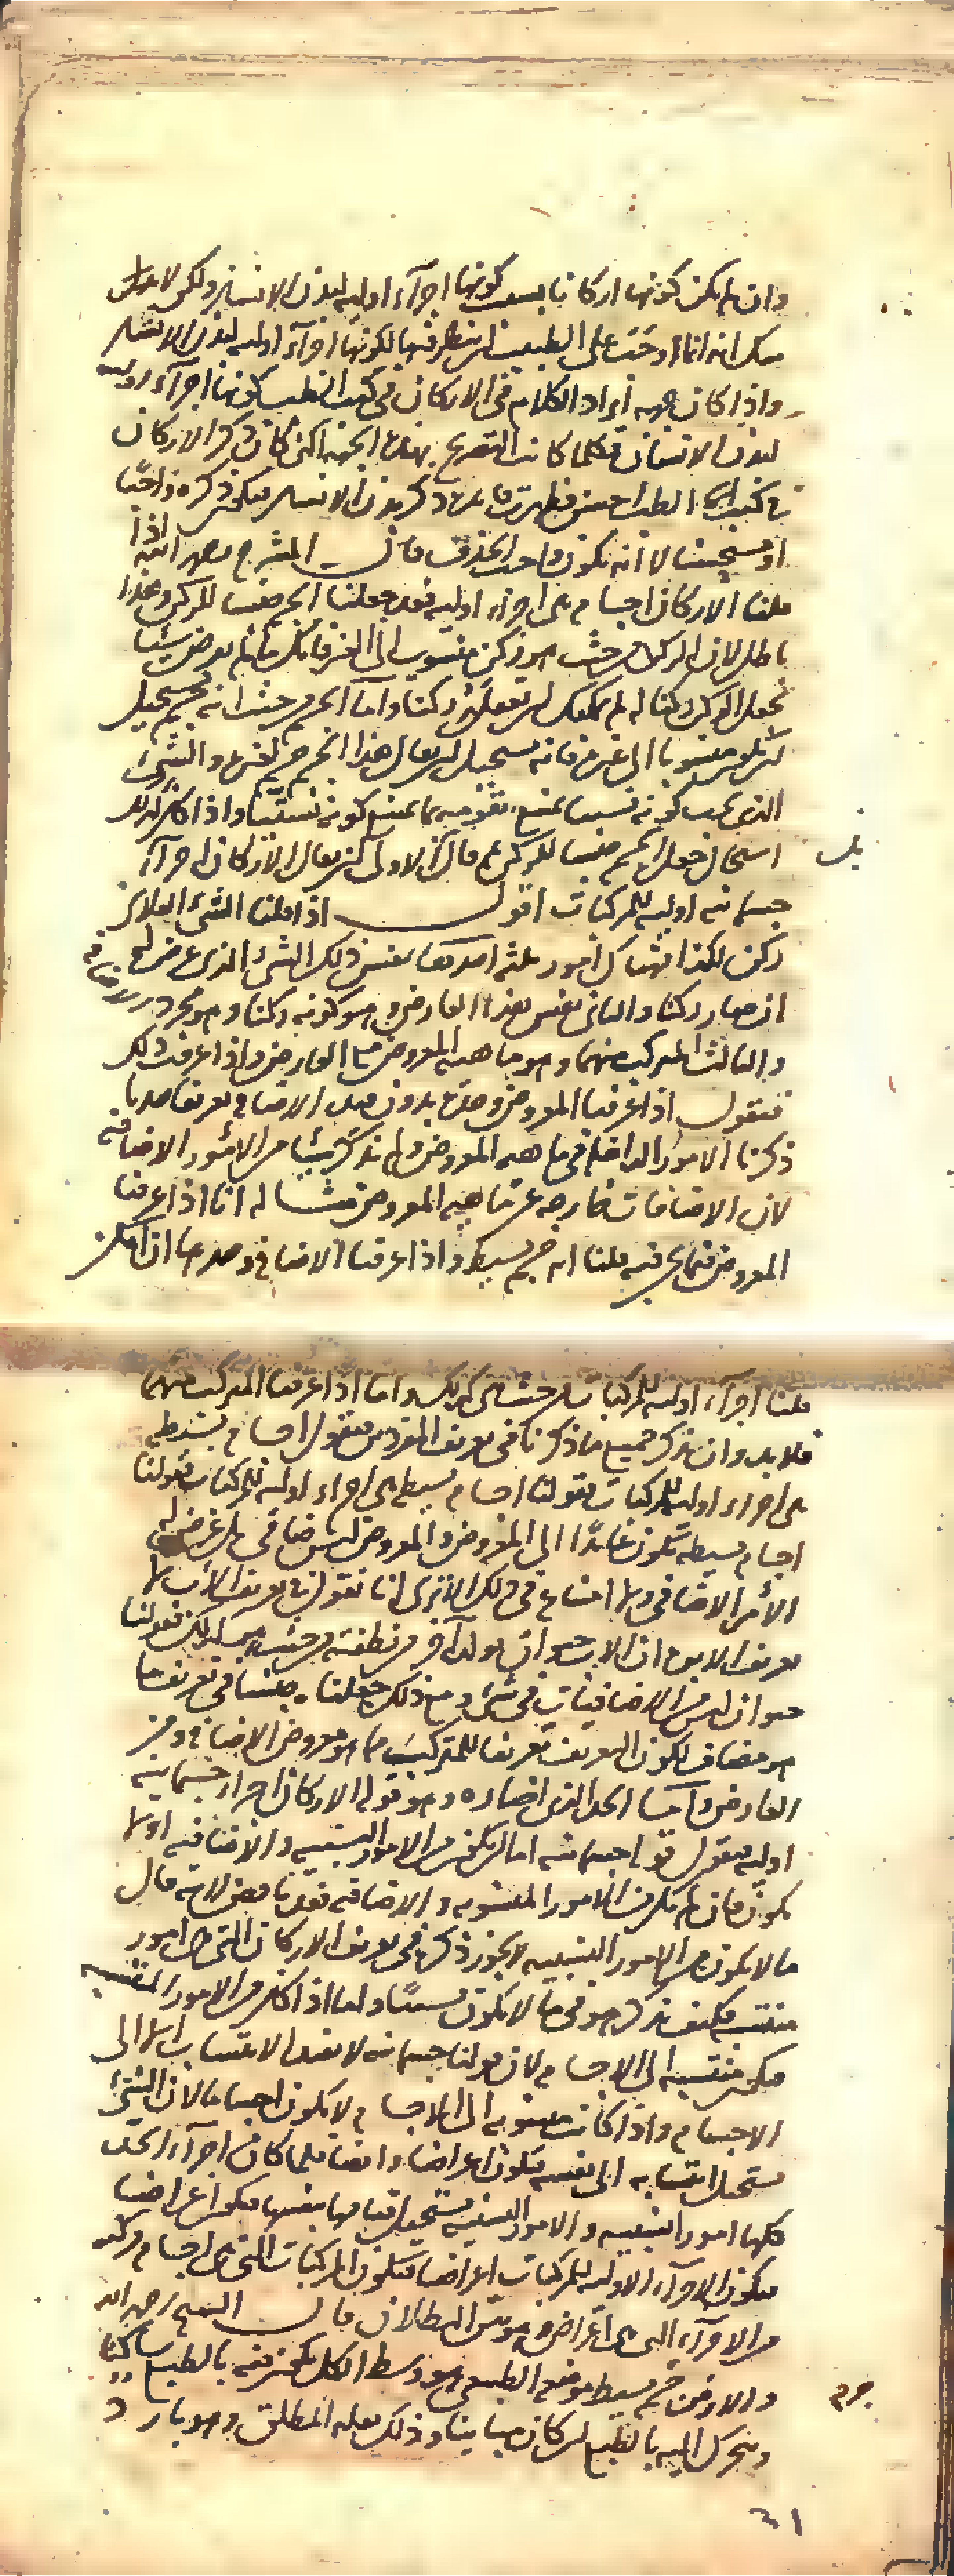 وان لم يكن كونها اركانا بسبب كونها اجزاء اولية لبدن الانسان ولكن لا
شك انه انما وجب على الطبيب ان ينظر فيها لكونها اجزاء اولية لبدن الانسان
واذا كان جهة ايراد الكلام في الاركان في كتب الطب كونها اجزاء اولية
لبدن الانسان فكلما كانت التصريح بهذه الجهة اكثر كان ذكر الاركان
في كتب الطب احسن فظهرت فايدة ذكر بدن الانسان فيكون ذكره واجبا
او مستحسنا لا انه يكون واجب الحذف قال المشرحي رحمه الله اذا
قلنا الاركان اجسام هي اجزاء اولية فقد جعلنا الجسم جنسا للركن وهذا
باطل لان الركن من حيث هو ركن منسوب الى الغير فانك ما لم تعرف شيئا
تجعل الركن ركنا له لم يمكنك ان تعقله ركنا واما الجسم من حيث انه جسم يستحيل
ان يكون منسوبا الى غيره فانه يستحيل ان يقال هذا الجسم جسم لغيره والشيء
الذي يجب كونه نسبيا يمتنع تقومه بما يمتنع كونه نسبيا واذا كان كذلك
استحال جعل الجسم جنسا للركن ثم قال الاولى ان يقال الاركان اجزاء
بل
جسمانية اولية للمركبات اقول اذا قلنا الشيء الفلاني
ركن لكذا فهناك امور ثلثة احدها نفس ذلك الشيء الذي عرض له
ان صار ركنا والثاني نفس هذا العارض وهو كونه ركنا وهو مجرد الاضافة
والثالث المركب منهما وهو ماهية المعروض مع العارض واذا عرفت ذلك
فنقول اذا عرفنا المعروض وحده بدون هذه الاضافة تعريفا حديا
ذكرنا الامور الداخلة في ماهية المعروض ولم نذكر شيئا من الامور الاضافية
لان الاضافات خارجة عن ماهية المعروض مثاله انا اذا عرفنا
المعروض فيما نحن فيه قلنا انه جسم بسيط واذا عرفنا الاضافة وحدها ان امكن
قلنا اجزاء اولية للمركبات من حيث هي كذلك واما اذا عرفنا المركب منهما
فلا بد وان نذكر جميع ما ذكرنا في تعريف المفردين فنقول اجسام بسيطة
هي اجزاء اولية للمركبات فقولنا اجسام بسيطة هي اجزاء اولية للمركبات فقولنا
اجسام بسيطة يكون عائدا الى المعروض والمعروض ليس اضافي بل عرض له
الامر الاضافي ولا امتناع في ذلك الا ترى انا نقول في تعريف الاب لا
تعريف الابوة ان الاب حيوان يولد آخر من نطفته من حيث هو كذلك فقولنا
حيوان ليس من الاضافيات في شيء ومع ذلك جعلناه جنسا في تعريف ما
هو مضاف لكون التعريف تعريفا للمتركب مما هو معروض الاضافة ومن
العارض واما الحد الذي اختاره وهو قوله الاركان اجزاء جسمانية
اولية فنقول قوله جسمانية اما ان يكون من الامور النسبية والاضافية او لا
يكون فان لم يكن من الامور المنسوبة والاضافية فقد ناقض لانه قال
ما لا يكون من الامور النسبية لا يجوز ذكره في تعريف الاركان التي هي امور
منتسبة فكيف يذكر هو فيه ما لا يكون نسبيا واما اذا كان من الامور المنتسبة
فيكون منتسبة الى الاجسام لان قولنا جسمانية لا يفيد الانتساب الا الى
الاجسام واذا كانت منسوبة الى الاجسام لا يكون اجساما لان الشيء
يستحيل انتسابه الى نفسه فيكون اعراضا وايضا فلما كان اجزاء الحد
كلها امورا نسبية والامور النسبية يستحيل قيامها بنفسها فيكون اعراضا
فيكون الاجزاء الاولية للمركبات اعراضا فيكون المركبات التي هي اجسام مركبة
من الاجزاء التي هي اعراض وهو بين البطلان قال الشيخ رحمه الله
والارض جرم بسيط موضعه الطبيعي هو وسط الكل يكون فيه بالطبع ساكنا
جرم
ويتحرك اليه بالطبع ان كان مباينا وذلك ثقله المطلق وهو بارد